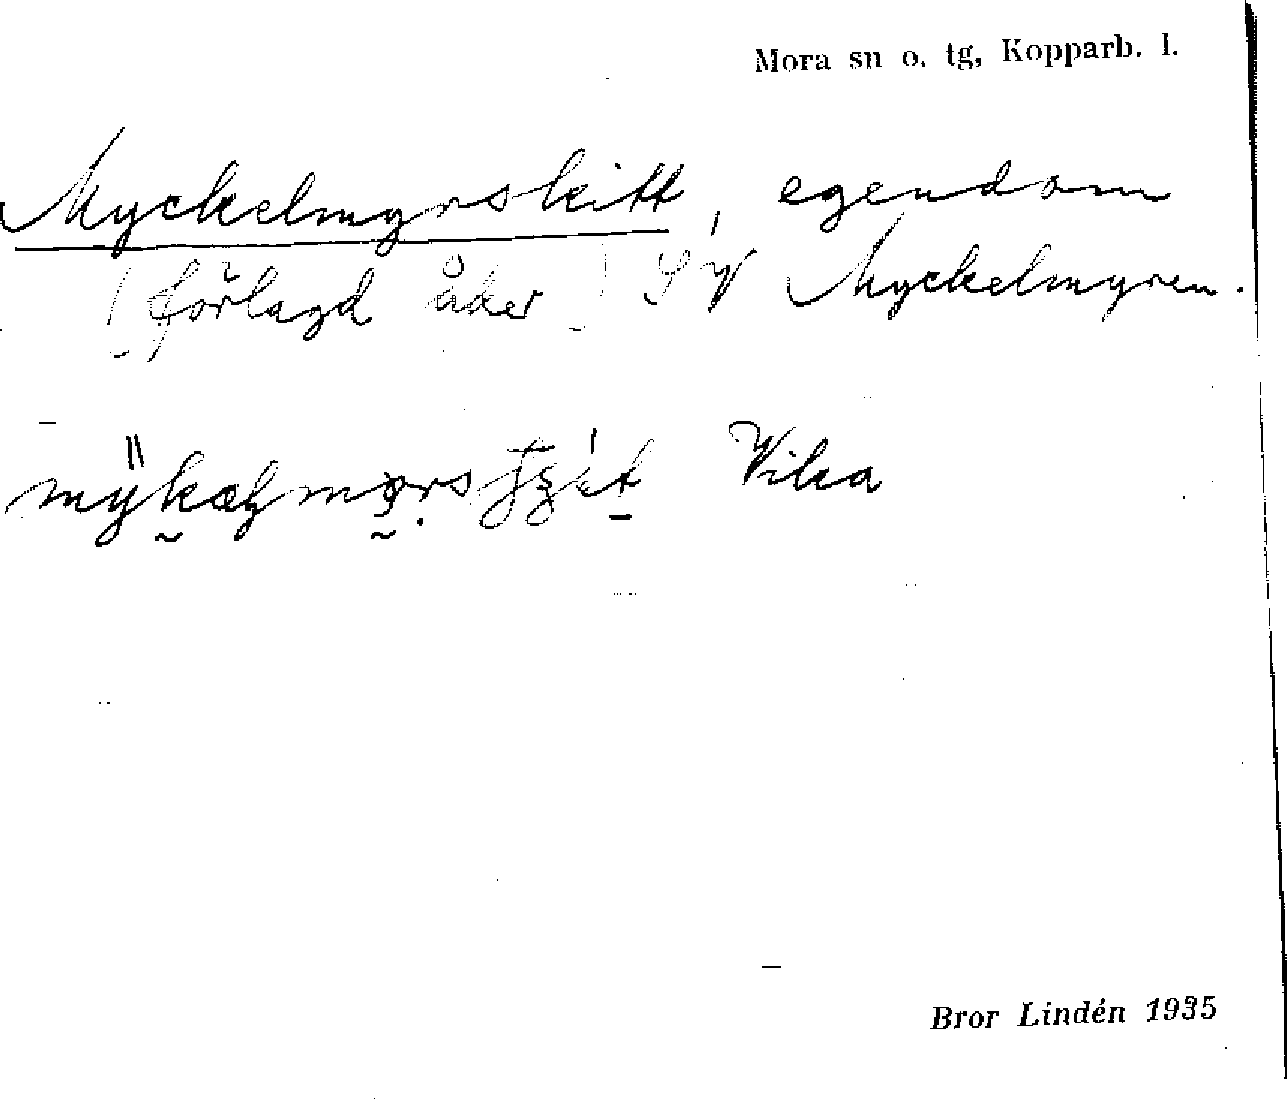 Mora sn o. tg, Kopparb. l.
Myckelmyrskitt, egendom
(förlagd åker) i V Myckelmyren.
Vika
Bror Lindén 1935